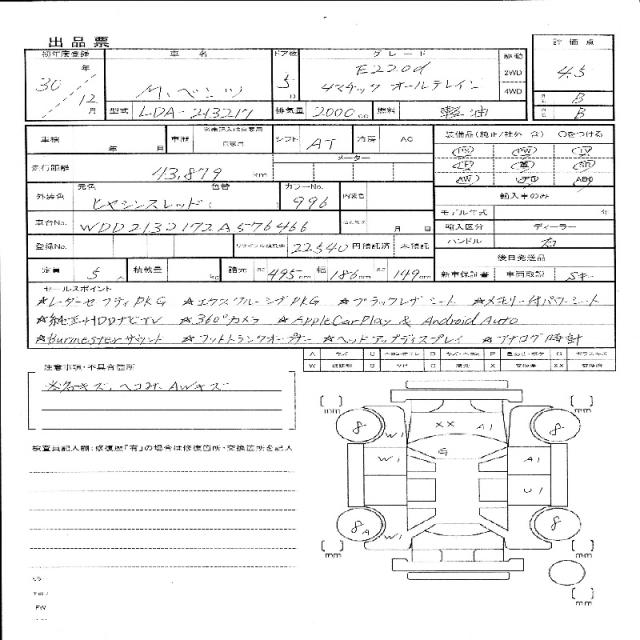 出品票
初年度登録 車名 ドア数 グレード 駆動 評価点
30年 12月 M.ベンツ 5 E220d 4マチック オールテレイン 2WD 4WD 4.5
B
B
型式 LDA-213217 排気量 2000cc 燃料 軽油
車検 年 月 車歴 シフト AT 冷房 AC 装備品(純正/社外 含) ○をつける
走行距離 43,879 km メーター
外装色 元色 色替 カラーNo. 内装色 輸入車のみ
ヒヤシンスレッド 996 モデル年式 年
車台No. WDD2132172A576466 月 日 輸入区分 ディーラー
登録No. リサイクル預託金 22,540 円預託済 未預託 ハンドル 右
後日発送品
定員 5人 積載量 kg 諸元 長 495cm 幅 186cm 高 149cm 新車保証書 車両取説 Sキー
セールスポイント
★レーダーセーフティPKG ★エクスクルーシブPKG ★ブラックレザーシート ★メモリー付パワーシート
★純正HDDナビTV ★360°カメラ ★AppleCarPlay & Android Auto
★Burmesterサウンド ★フットトランクオープナー ★ヘッドアップディスプレイ ★アナログ時計
注意事項・不具合箇所
※各キズ、ヘコミ AWキズ
検査員記入欄:修復歴『有』の場合は修復箇所・交換箇所を記入
[ ]mm [ ]mm
8 W1 XX A1 8
G
W1 A1
U1
8A W1 8
[ ]mm [ ]mm
[ ]mm